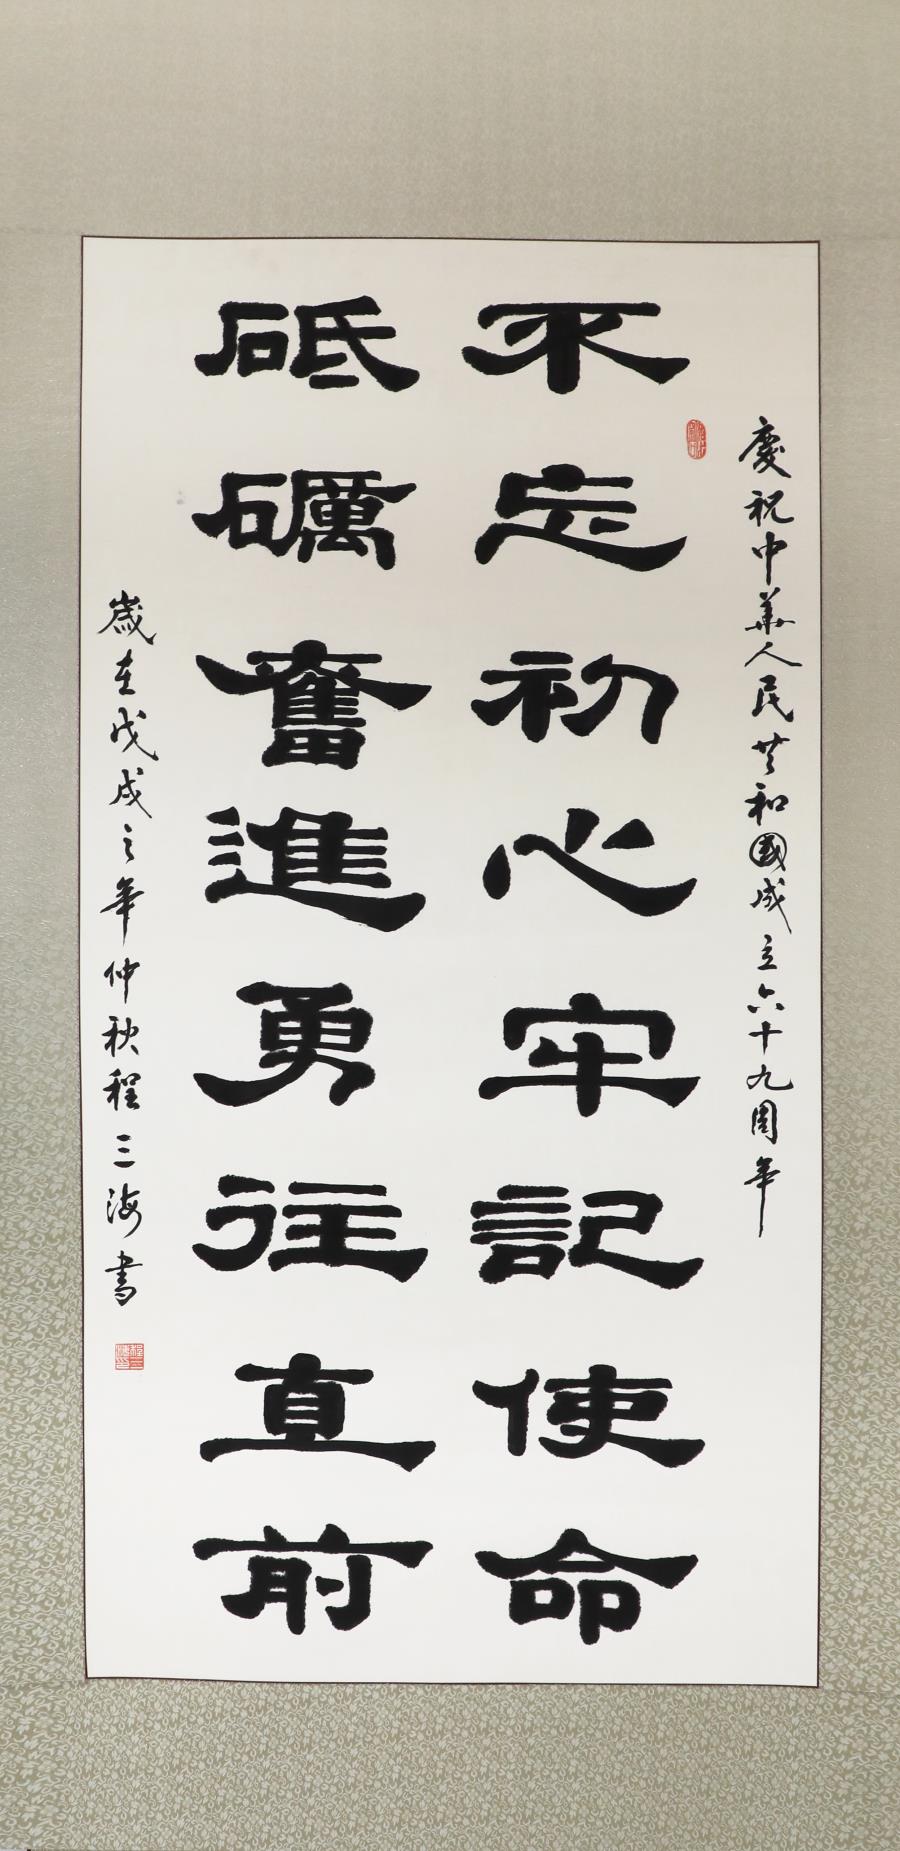 慶祝中華人民共和國成立六十九周年
不忘初心牢記使命
砥礪奮進勇往直前
歲在戊戌之年仲秋程三海書